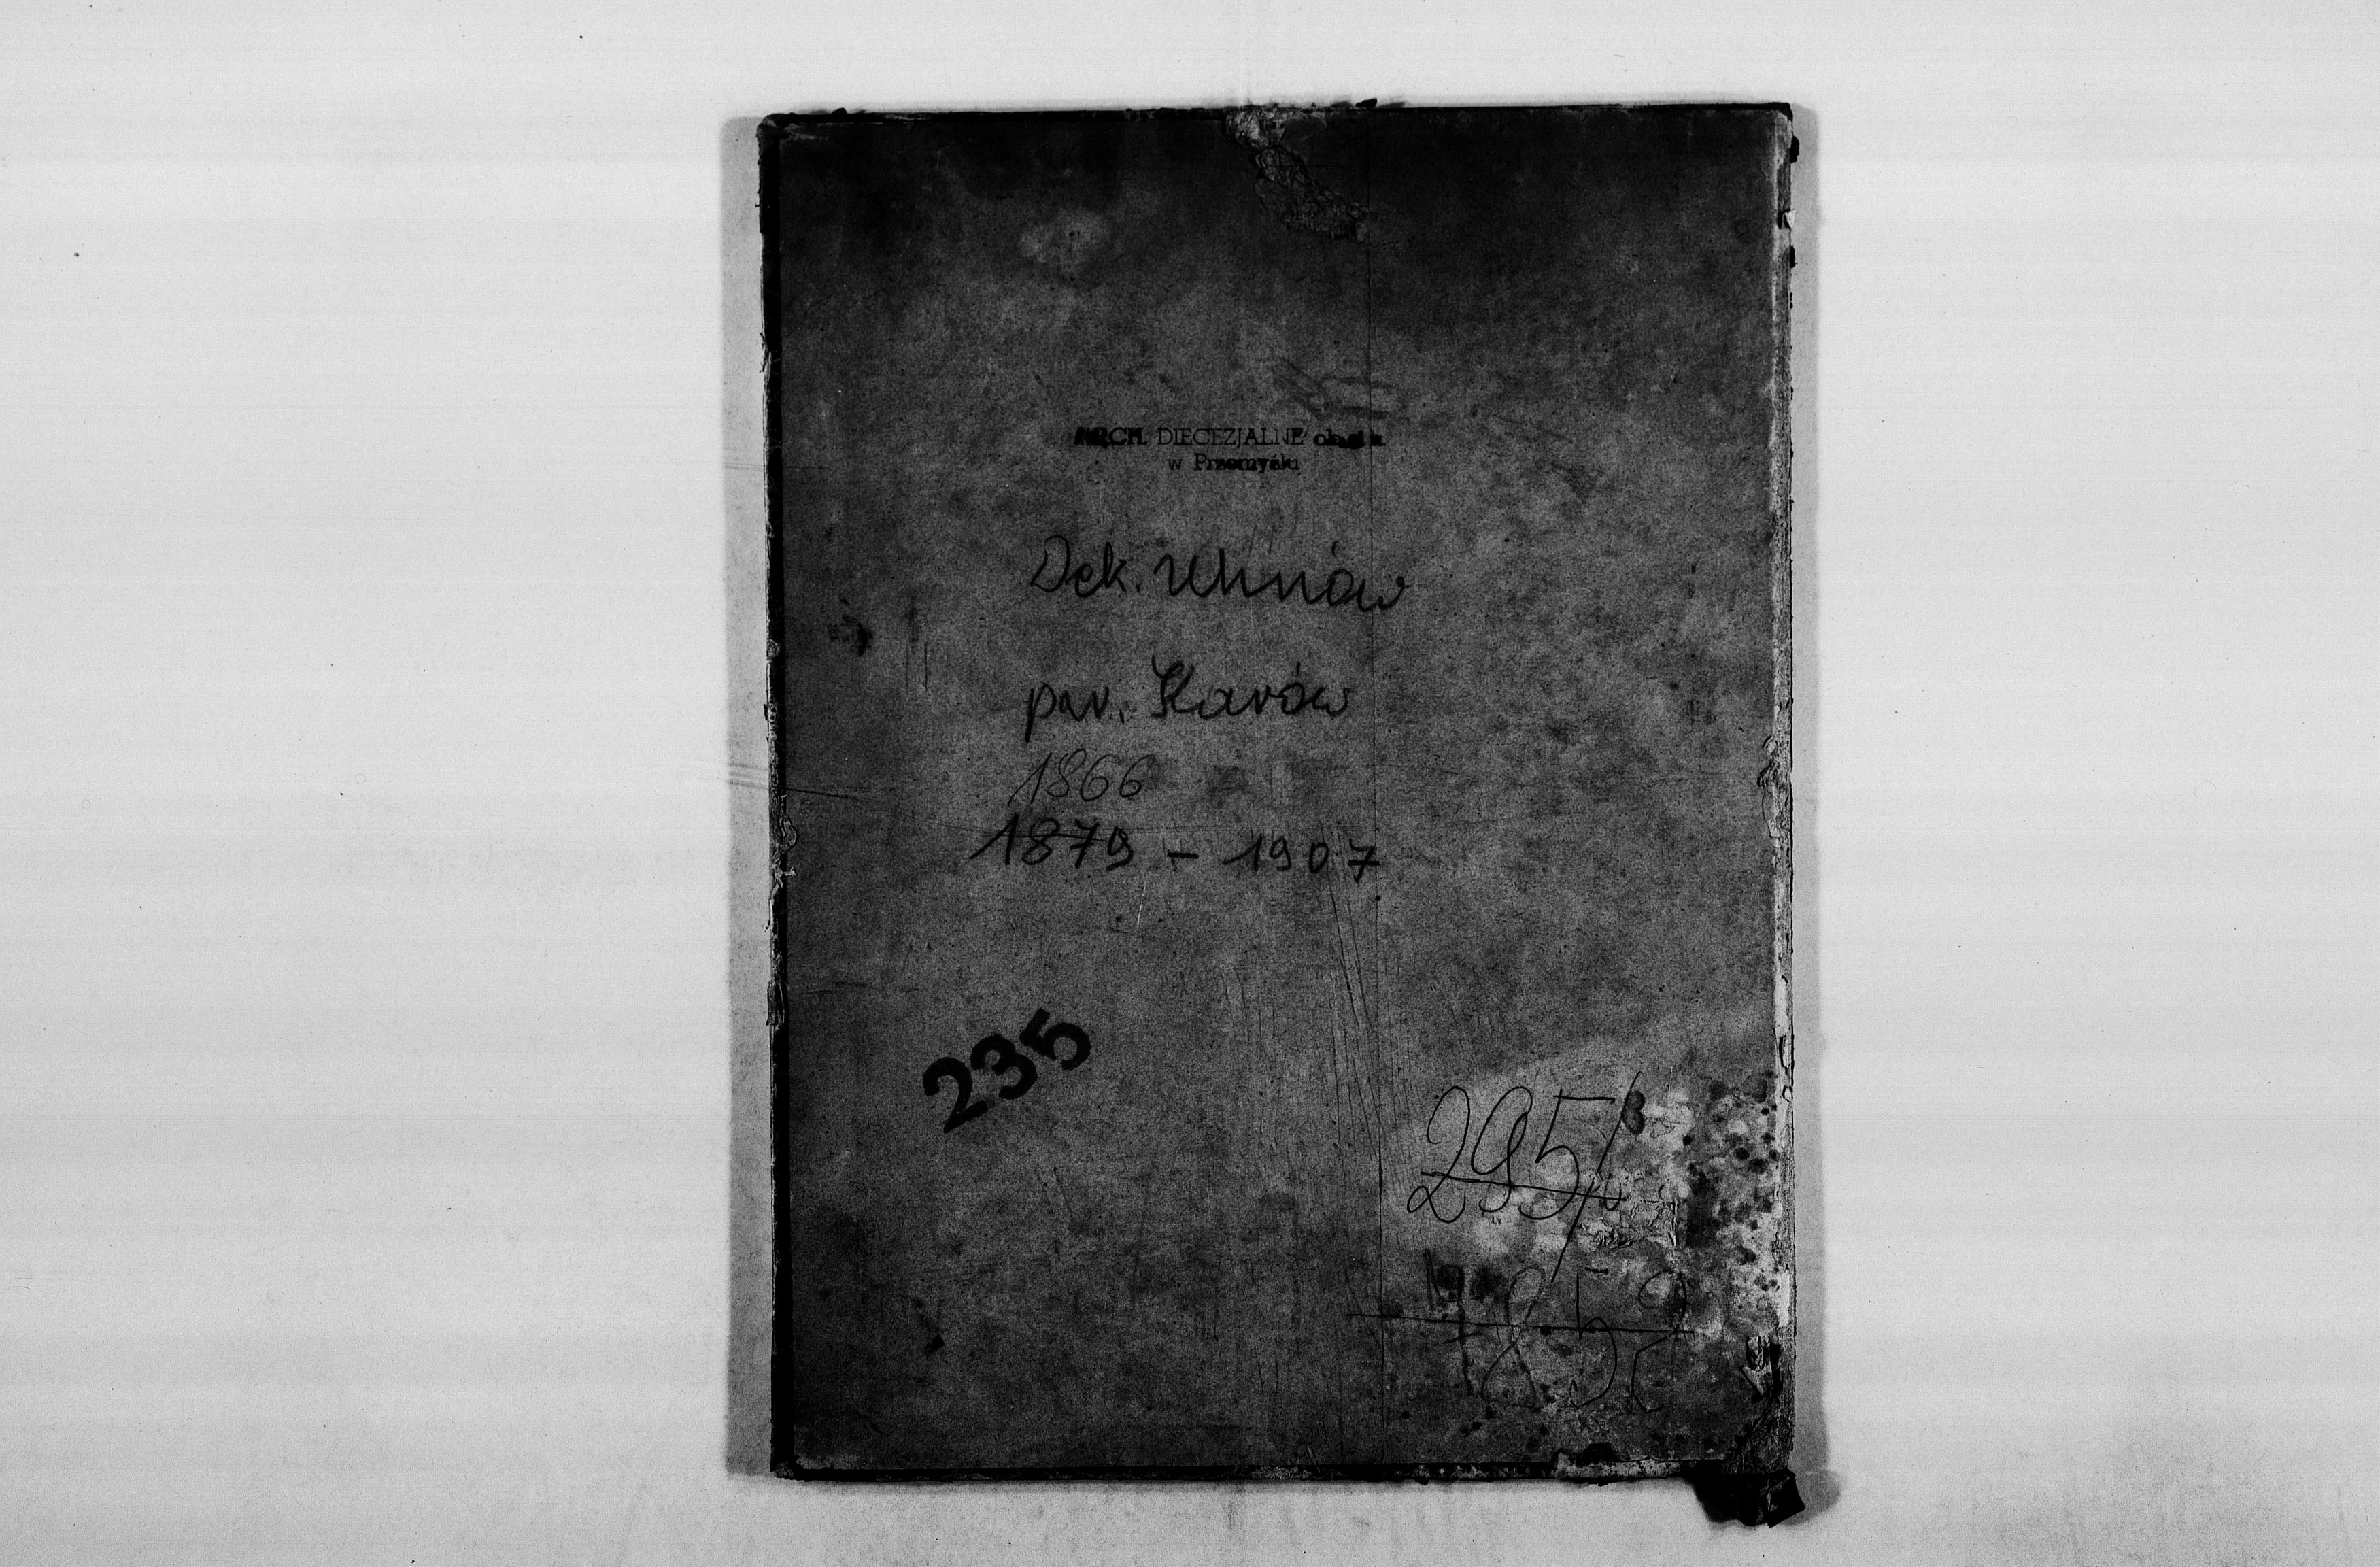 ARCH. DIECEZJALNE
w Przemyślu
Dek. Uhnów
par. Karów
1866
1879 – 1907
235
295/
7859